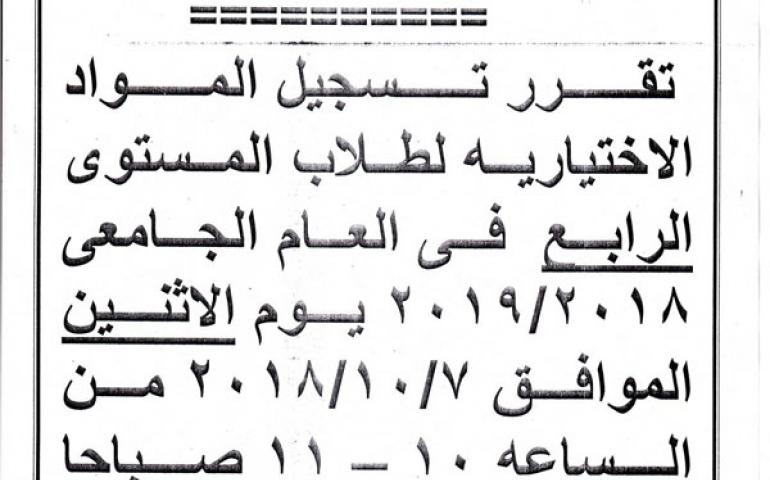 تقرر تسجيل المواد
الاختياريه لطلاب المستوى
الرابع فى العام الجامعى
٢٠١٩/٢٠١٨ يوم الاثنين
الموافق ٢٠١٨/١٠/٧ من
الساعه ١٠ – ١١ صباحا